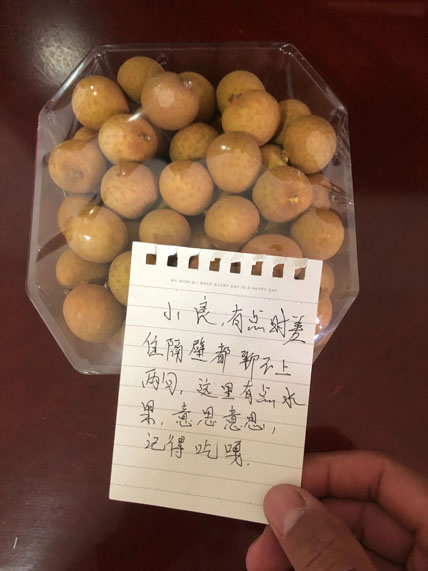 MY WORLD I MAKE EVERY DAY IS A HAPPY DAY
小良，有点时差
住隔壁都聊不上
两句，这里有点水
果，意思意思，
记得吃嘎.